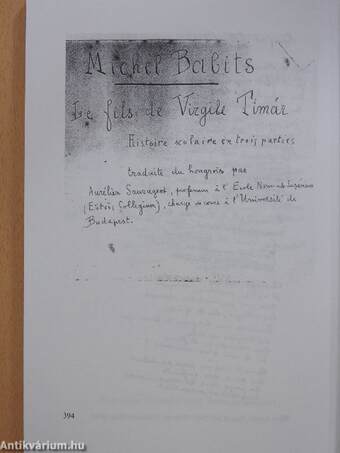 Michel Babits
Le fils de Virgile Timár
Histoire scolaire en trois parties
traduite du hongrois par
Aurélien Sauvageot, professeur à l'Ecole Normale Supérieure
(Eötvös Collegium), chargé de cours à l'Université de
Budapest.
394
Antikvárium.hu